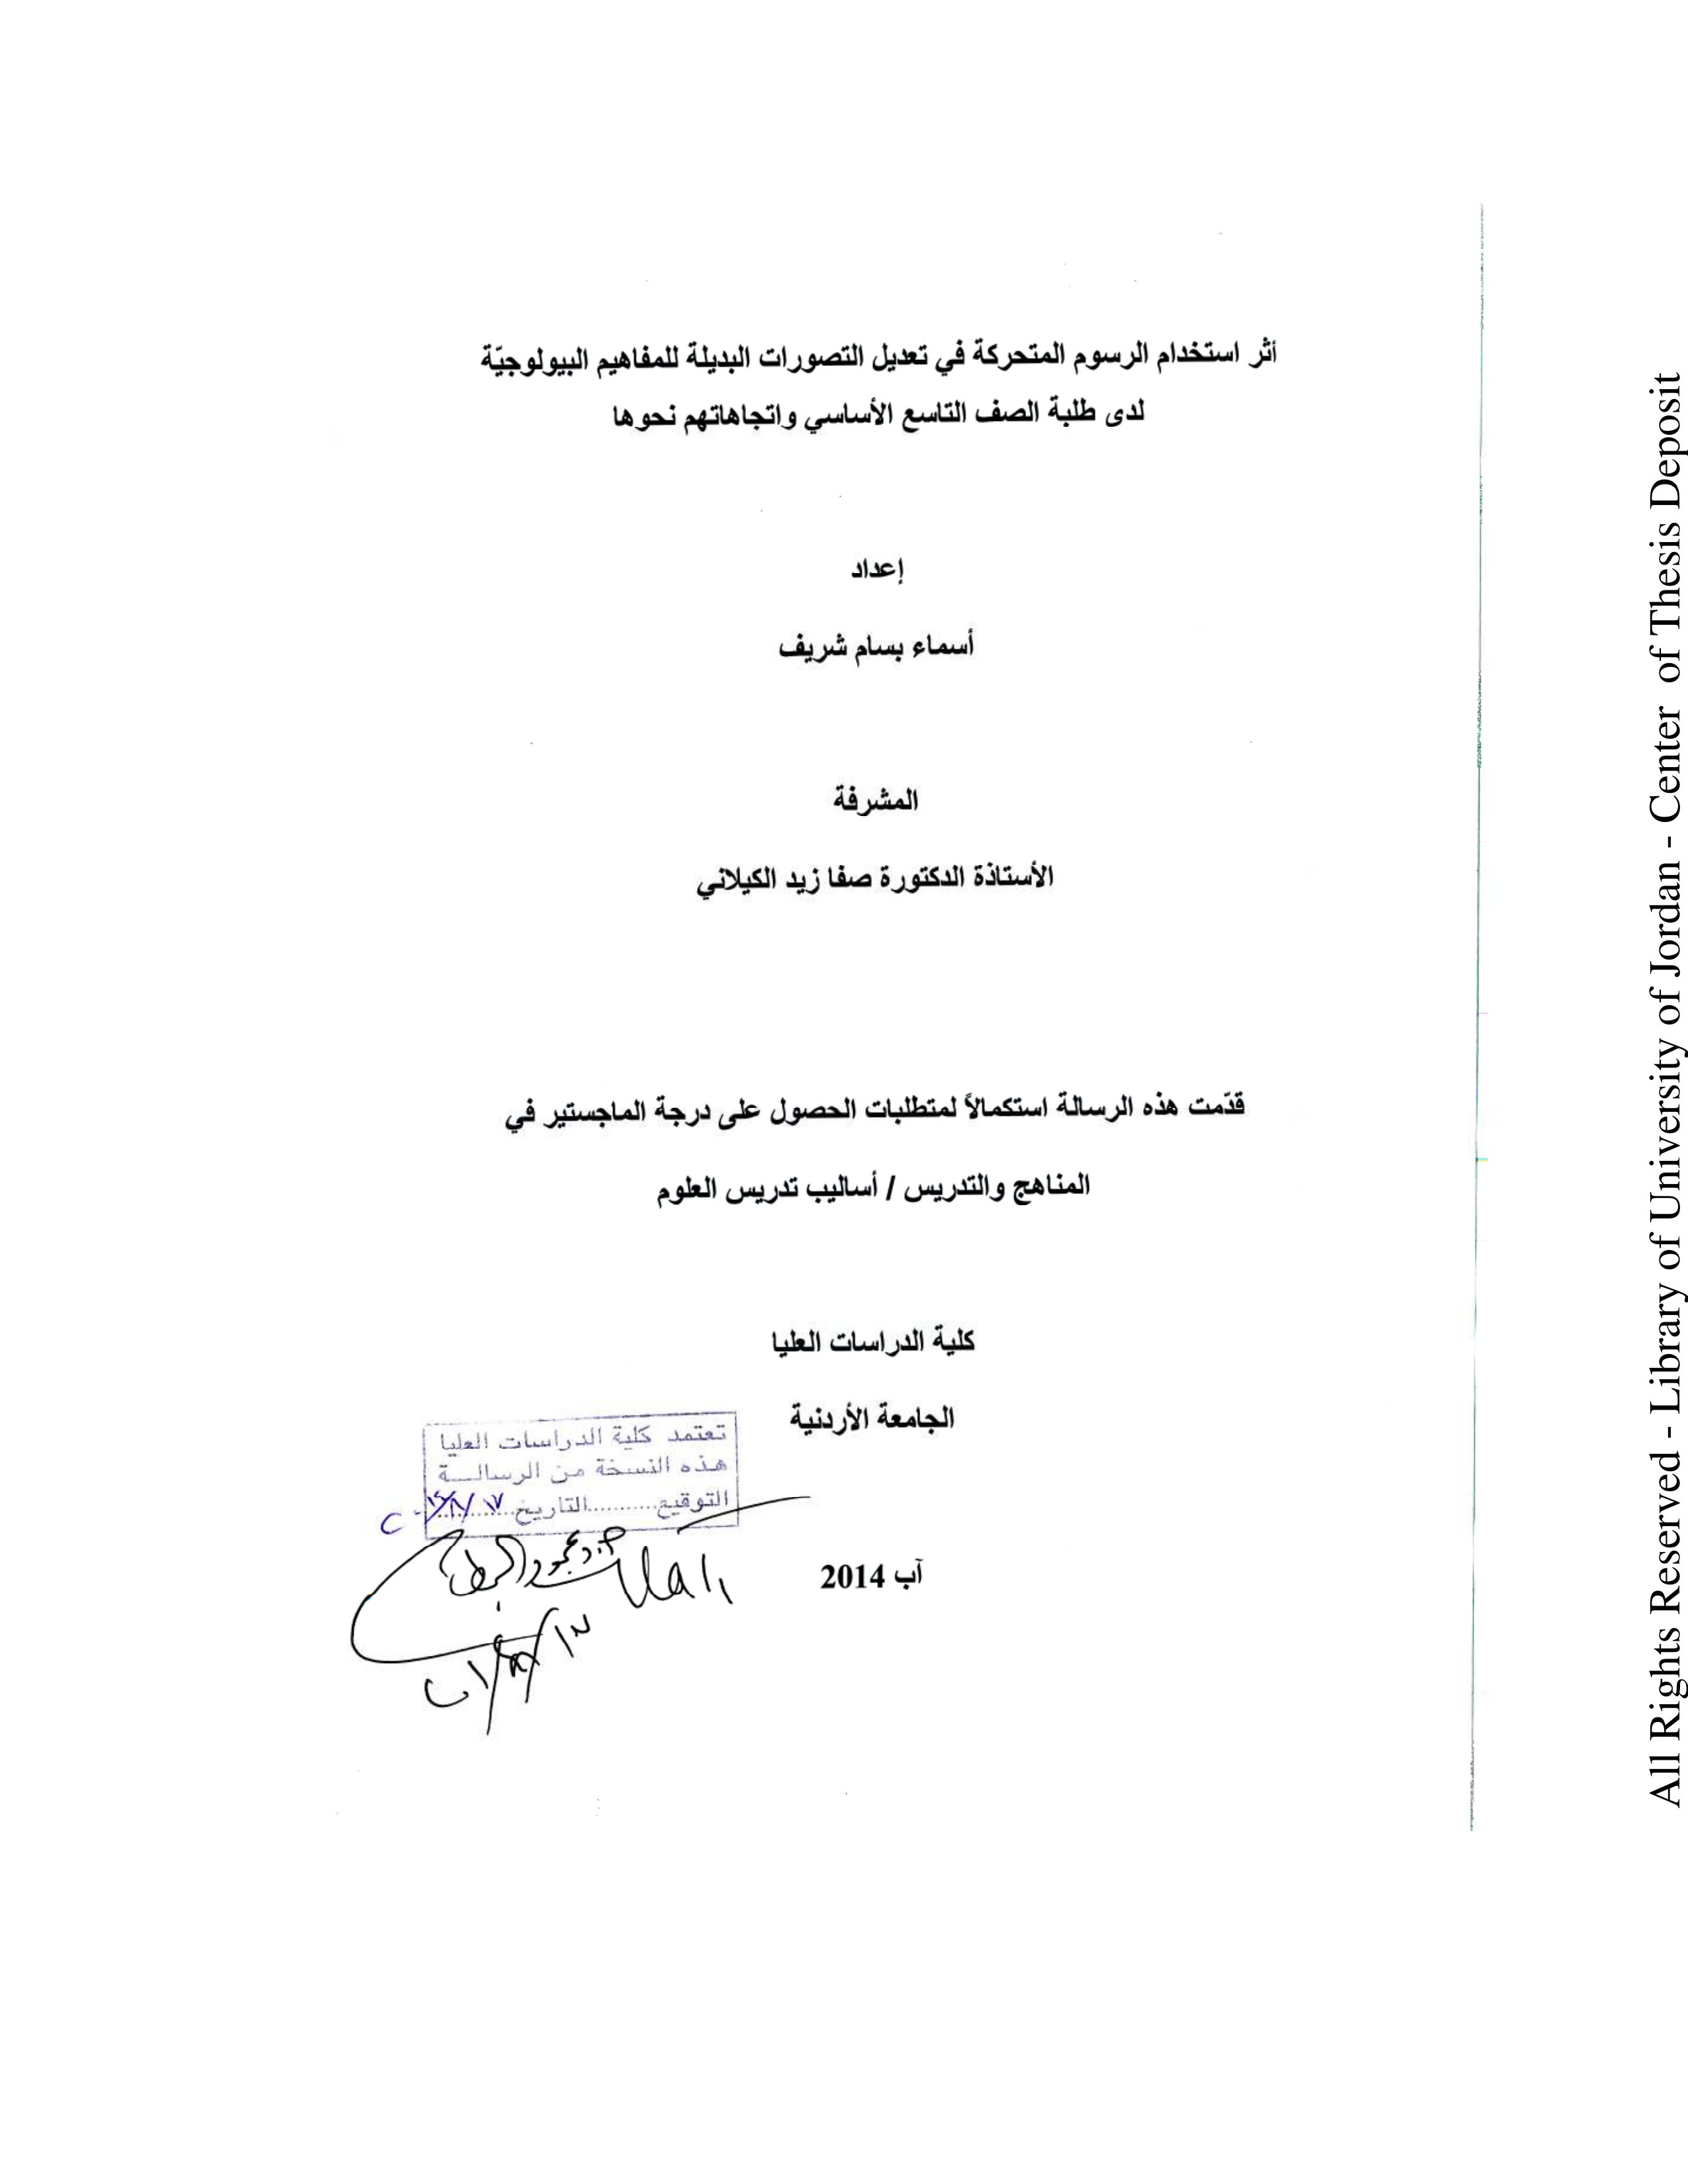 أثر استخدام الرسوم المتحركة في تعديل التصورات البديلة للمفاهيم البيولوجيّة
لدى طلبة الصف التاسع الأساسي واتجاهاتهم نحوها
إعداد
أسماء بسام شريف
المشرفة
الأستاذة الدكتورة صفا زيد الكيلاني
قدّمت هذه الرسالة استكمالاً لمتطلبات الحصول على درجة الماجستير في
المناهج والتدريس / أساليب تدريس العلوم
كلية الدراسات العليا
الجامعة الأردنية
تعتمد كلية الدراسات العليا
هذه النسخة من الرسالــة
التوقيع...........التاريخ
آب 2014
All Rights Reserved - Library of University of Jordan - Center of Thesis Deposit